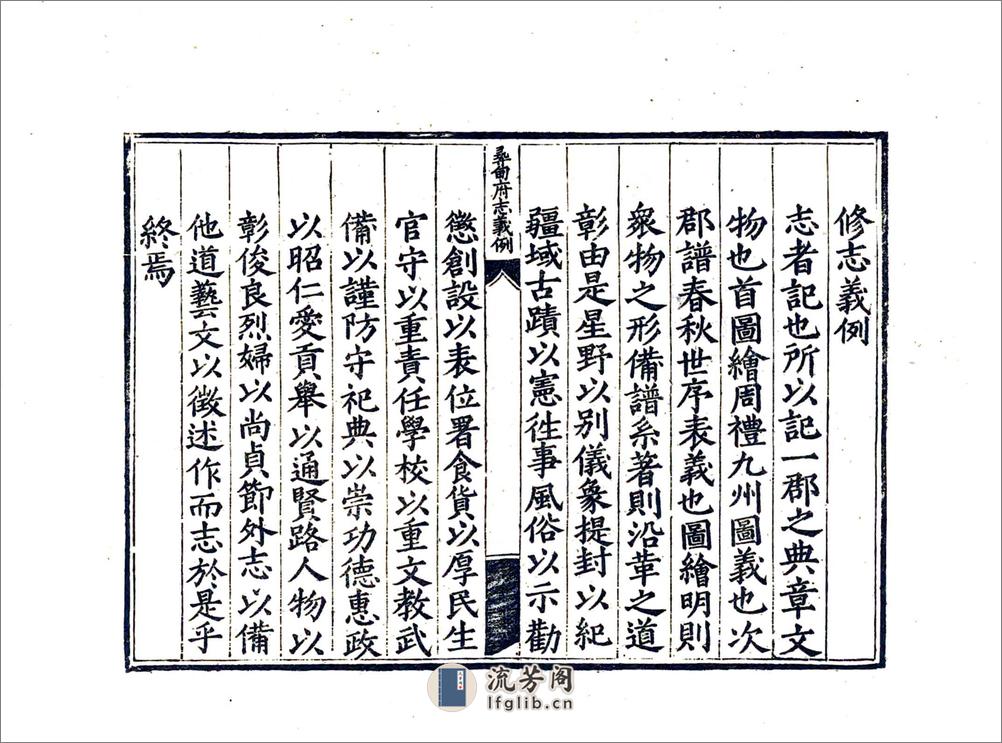 修志義例
志者記也所以記一郡之典章文
物也首圖繪周禮九州圖義也次
郡譜春秋世序表義也圖繪明則
衆物之形備譜系著則沿革之道
彰由是星野以別儀象提封以紀
疆域古蹟以憲徃事風俗以示勸
尋甸府志義例
懲創設以表位署食貨以厚民生
官守以重責任學校以重文教武
備以謹防守祀典以崇功德惠政
以昭仁愛貢舉以通賢路人物以
彰俊良烈婦以尚貞節外志以備
他道藝文以徵述作而志於是乎
終焉
流芳阁
lfglib.cn